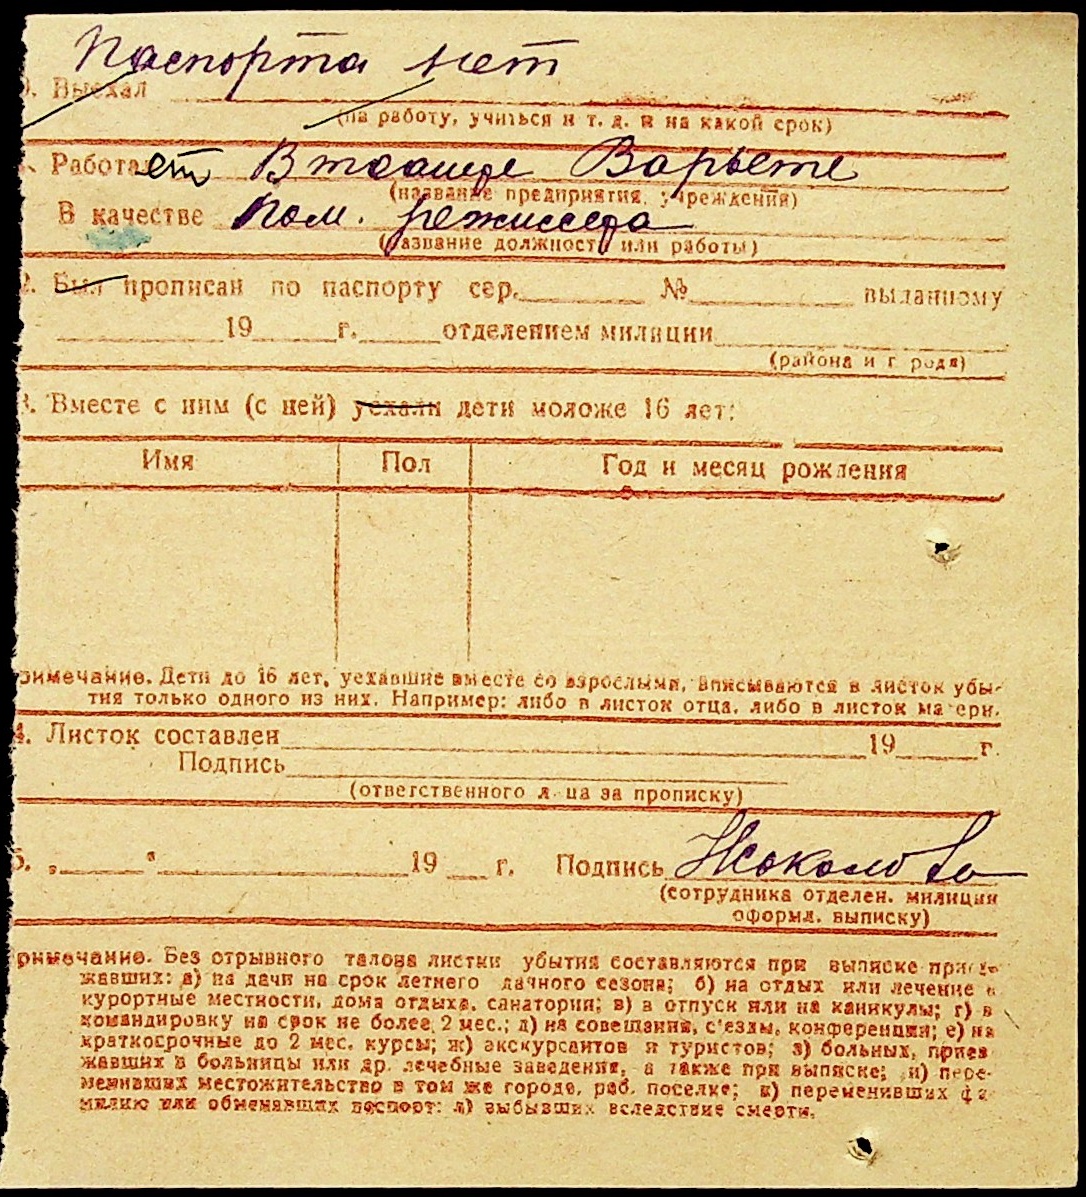 Паспорта нет
0. Выехал
(на работу, учиться и т. д. и на какой срок)
Работает В театре Варьете
(название предприятия, учреждения)
В качестве Пом. режиссера
(название должности или работы)
2. Был прописан по паспорту сер. № выданному
19 г. отделением милиции
(района и города)
3. Вместе с ним (с ней) уехали дети моложе 16 лет:
Имя Пол Год и месяц рождения
римечание. Дети до 16 лет, уехавшие вместе со взрослыми, вписываются в листок убы-
тия только одного из них. Например: либо в листок отца, либо в листок матери.
4. Листок составлен 19 г.
Подпись
(ответственного лица за прописку)
5. „ " 19 г. Подпись
(сотрудника отделен. милиции
оформл. выписку)
римечание. Без отрывного талона листки убытия составляются при выписке приез-
жавших: а) на дачи на срок летнего дачного сезона; б) на отдых или лечение в
курортные местности, дома отдыха, санатории; в) в отпуск или на каникулы; г) в
командировку на срок не более 2 мес.; д) на совещания, с'езды, конференции; е) на
краткосрочные до 2 мес. курсы; ж) экскурсантов и туристов; з) больных, приез
жавших в больницы или др. лечебные заведения, а также при выписке; и) пере-
менивших местожительство в том же городе, раб. поселке; к) переменивших фа
милию или обменявших паспорт; л) выбывших вследствие смерти.